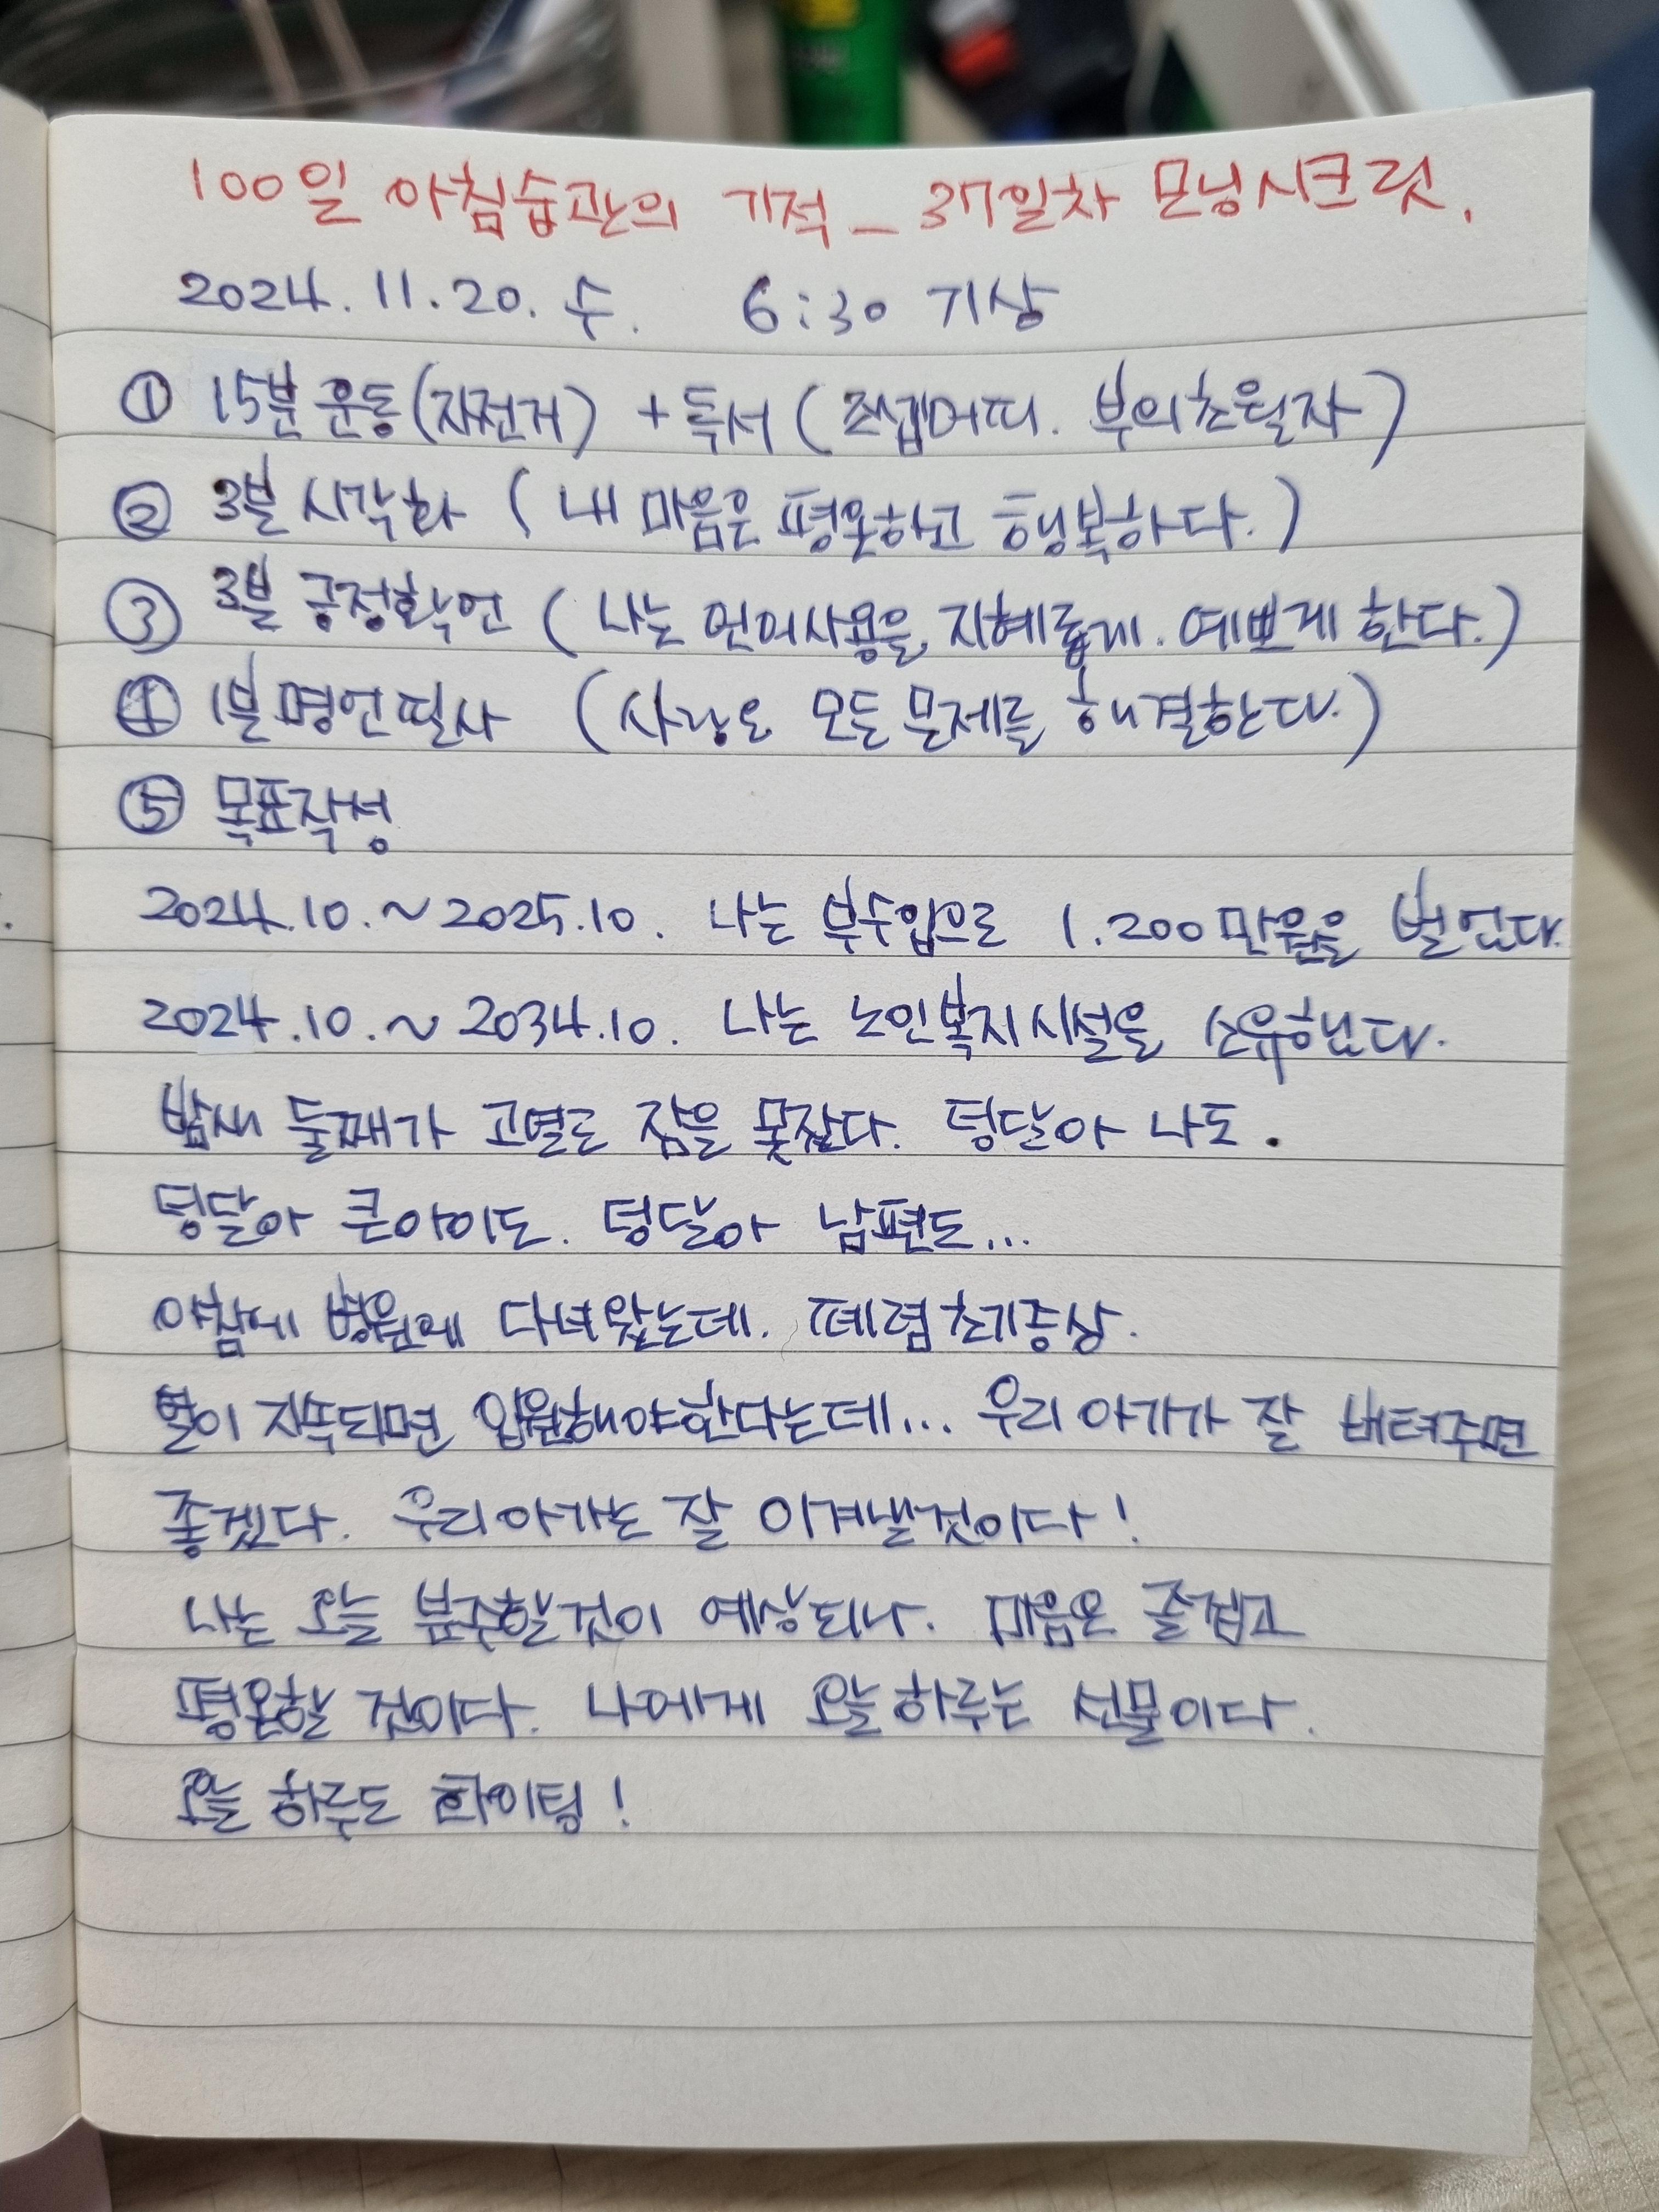 100일 아침습관의 기적_37일차 모닝시크릿.
2024.11.20. 수. 6:30 기상
① 15분 운동(자전거) + 독서(조셉머피. 부의초월자)
② 3분 시각화 (내 마음은 평온하고 행복하다.)
③ 3분 긍정확언 (나는 언어사용을 지혜롭게. 예쁘게 한다.)
④ 1분 명언필사 (사랑은 모든 문제를 해결한다.)
⑤ 목표작성
2024.10.~2025.10. 나는 부수입으로 1.200만원을 벌었다.
2024.10.~2034.10. 나는 노인복지시설을 소유했다.
밤새 둘째가 고열로 잠을 못잤다. 덩달아 나도.
덩달아 큰아이도. 덩달아 남편도...
아침에 병원에 다녀왔는데. 폐렴초기증상.
열이 지속되면 입원해야한다는데... 우리아가가 잘 버텨주면
좋겠다. 우리아가는 잘 이겨낼것이다!
나는 오늘 분주할것이 예상되나. 마음은 즐겁고
평온할 것이다. 나에게 오늘하루는 선물이다.
오늘 하루도 화이팅!